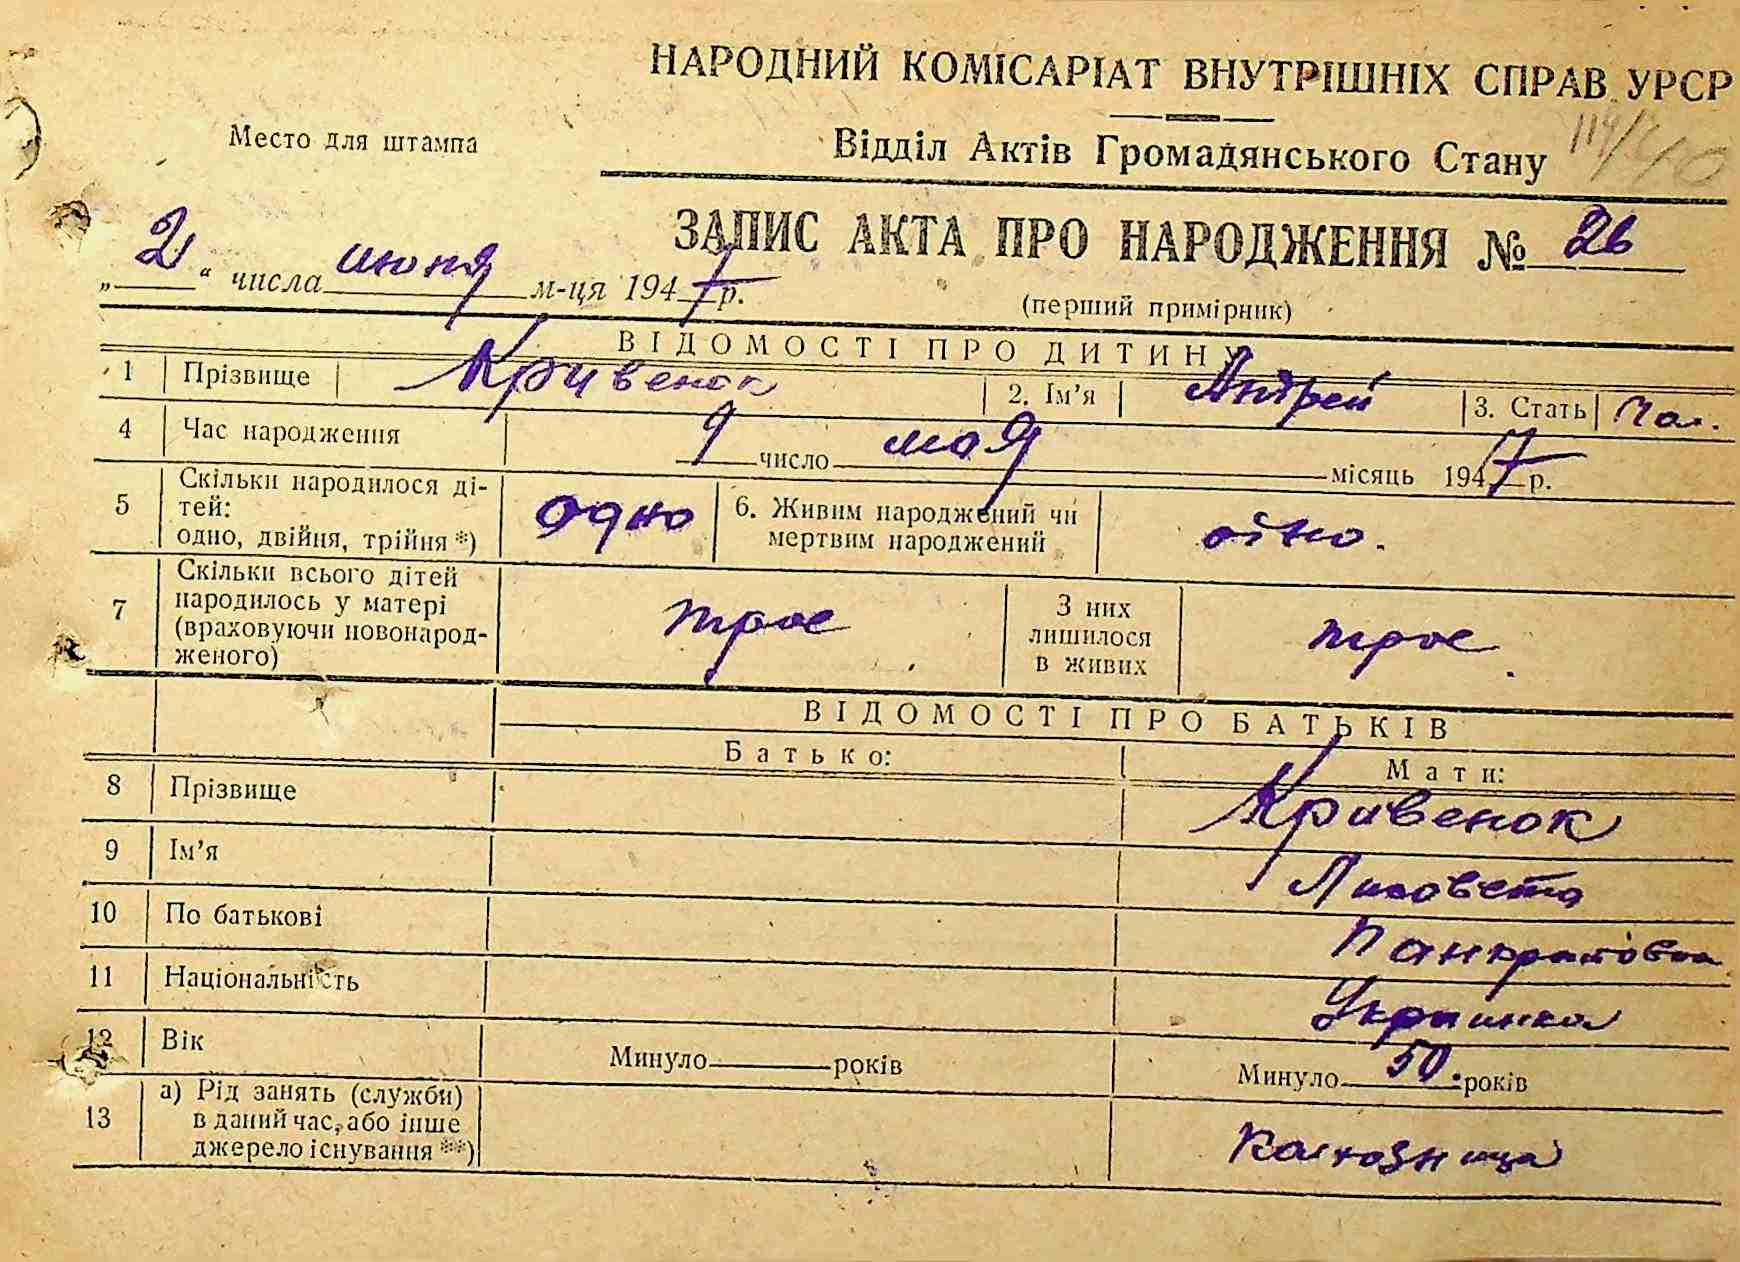 НАРОДНИЙ КОМІСАРІАТ ВНУТРІШНІХ СПРАВ УРСР
Место для штампа
Відділ Актів Громадянського Стану
ЗАПИС АКТА ПРО НАРОДЖЕННЯ № 26
„2“ числа июня м-ця 1947 р.
(перший примірник)
ВІДОМОСТІ ПРО ДИТИНУ
1 Прізвище Кривенок 2. Ім’я Андрей 3. Стать Чол.
4 Час народження 9 число мая місяць 1947 р.
5 Скільки народилося ді-
тей:
одно, двійня, трійня *) одно
6. Живим народжений чи
мертвим народжений
7 Скільки всього дітей
народилось у матері
(враховуючи новонарод-
женого) трое
З них
лишилося
в живих трое
ВІДОМОСТІ ПРО БАТЬКІВ
Батько: Мати:
8 Прізвище Кривенок
9 Ім’я Лизовета
10 По батькові Панкратовна
11 Національність Украинка
12 Вік Минуло років Минуло 50. років
13 а) Рід занять (служби)
в даний час, або інше
джерело існування **) Колхозница